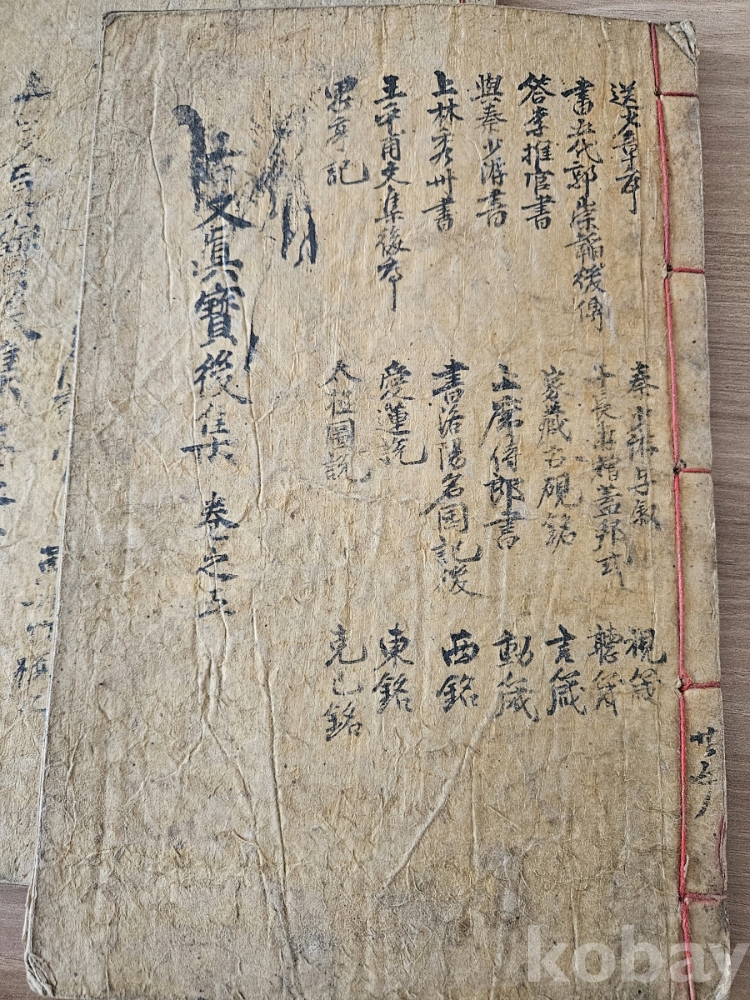 送秦少章序
書五代郭崇韜後傳
答李推官書
與秦少游書
上林秀州書
王平甫文集後序
思亭記
秦少游字敍
子長遊贈蓋邦式
家藏古硯銘
上席侍郎書
書洛陽名園記後
愛蓮說
太極圖說
視箴
聽箴
言箴
動箴
西銘
東銘
克己銘
古文眞寶後集 卷之五
kobay